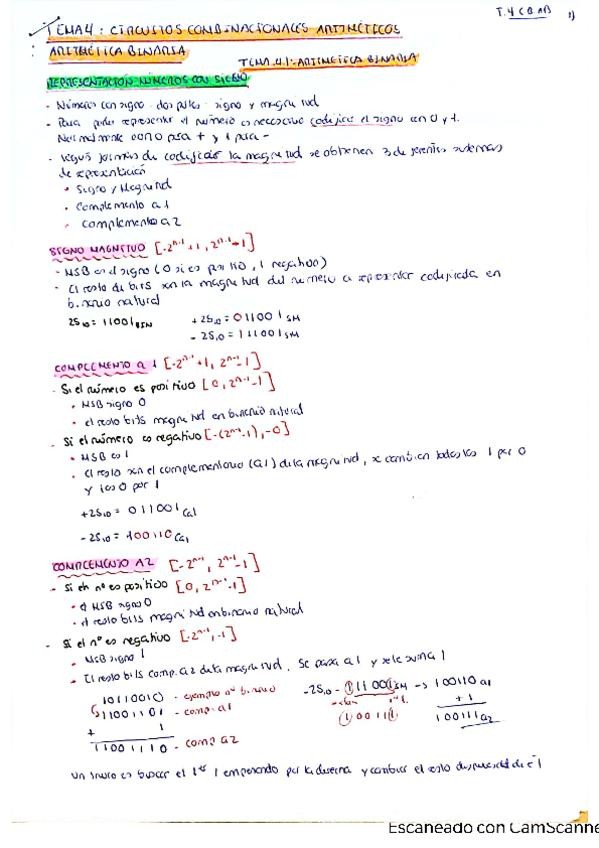 T.4 CB.AB 1)
TEMA 4: CIRCUITOS COMBINACIONALES ARITMÉTICOS
ARITMÉTICA BINARIA
TEMA.4.1-ARITMÉTICA BINARIA
REPRESENTACIÓN NÚMEROS CON SIGNO
- Números con signo - dos partes - signo y magnitud
- Para poder representar el número es necesario codificar el signo con 0 y 1.
Normalmente con 0 para + y 1 para -
- Según formas de codificar la magnitud se obtienen 3 diferentes sistemas
de representación
• Signo y Magnitud
• Complemento a 1
• Complemento a 2
SIGNO MAGNITUD [-2ⁿ⁻¹+1, 2ⁿ⁻¹-1]
- MSB es el signo (0 si es positivo, 1 negativo)
- El resto de bits son la magnitud del numero a representar codificada en
binario natural
25₁₀ = 11001 BIN +25₁₀ = 011001 SM
- 25₁₀ = 111001 SM
COMPLEMENTO a 1 [-2ⁿ⁻¹+1, 2ⁿ⁻¹-1]
- Si el número es positivo [0, 2ⁿ⁻¹-1]
• MSB signo 0
• el resto bits magnitud en binario natural
- Si el número es negativo [-(2ⁿ⁻¹-1), -0]
• MSB es 1
• El resto son el complementario (a1) de la magnitud, se cambian todos los 1 por 0
y los 0 por 1
+25₁₀ = 011001 Ca1
- 25₁₀ = 100110 Ca1
COMPLEMENTO A2 [-2ⁿ⁻¹, 2ⁿ⁻¹-1]
- Si el nº es positivo [0, 2ⁿ⁻¹-1]
• el MSB signo 0
• el resto bits magnitud en binario natural
- Si el nº es negativo [-2ⁿ⁻¹, -1]
• MSB signo 1
• El resto bits comp. a2 de la magnitud. Se pasa a 1 y se le suma 1
10110010 - ejemplo nº binario -25₁₀ - 111001 SM -> 100110 a1
11001101 - comp. a1 + 1
+ 1 100111 100111 a2
11001110 - comp a2
Un truco es buscar el 1er 1 empezando por la derecha y cambiar el resto después de él
Escaneado con CamScanne